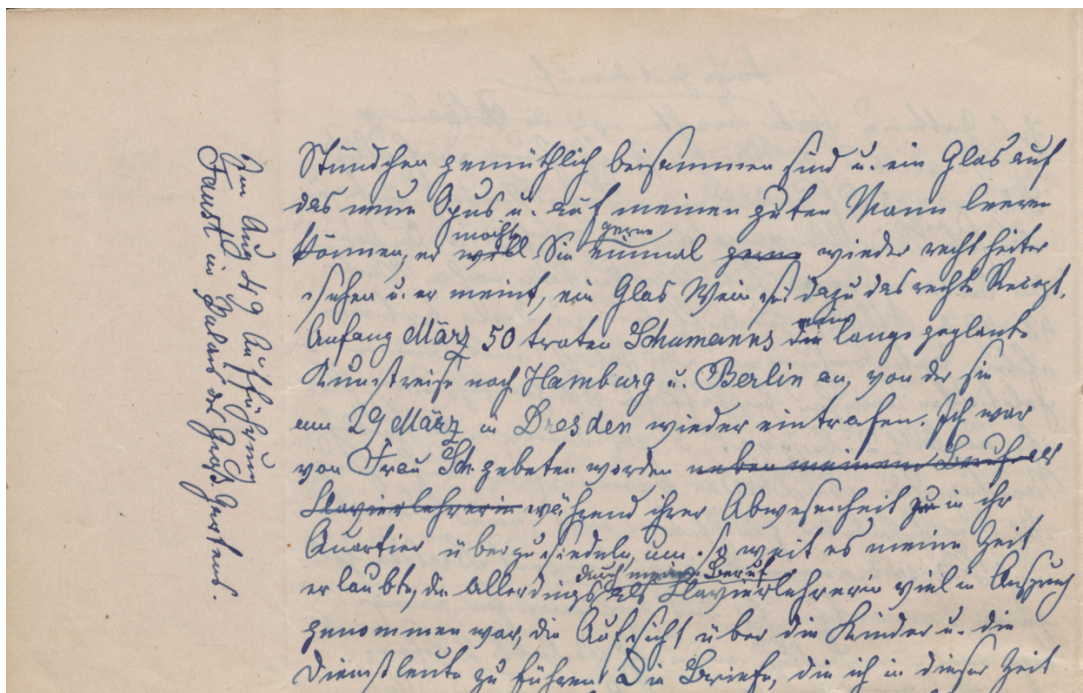 Im Aug 49 Aufführung
Faust im Palais des Groß. Gartens.
Stündchen gemüthlich beisammen sind u. ein Glas auf
das neue Opus u. auf meinen guten Mann leeren
möchte gerne
können, er will Sie einmal gern wieder recht heiter
sehen u. er meint, ein Glas Wein sei dazu das rechte Recept.
eine
Anfang März 50 traten Schumanns die lange geplante
Kunstreise nach Hamburg u. Berlin an, von der sie
am 29 März in Dresden wieder eintrafen. Ich war
von Frau Sch. gebeten worden neben meinem Beruf als
Klavierlehrerin während ihrer Abwesenheit zu in ihr
Quartier überzusiedeln, um so weit es meine Zeit
durch meinen Beruf
erlaubte, die allerdings als Klavierlehrerin viel in Anspruch
genommen war, die Aufsicht über die Kinder u. die
Dienstleute zu führen Die Briefe, die ich in dieser Zeit